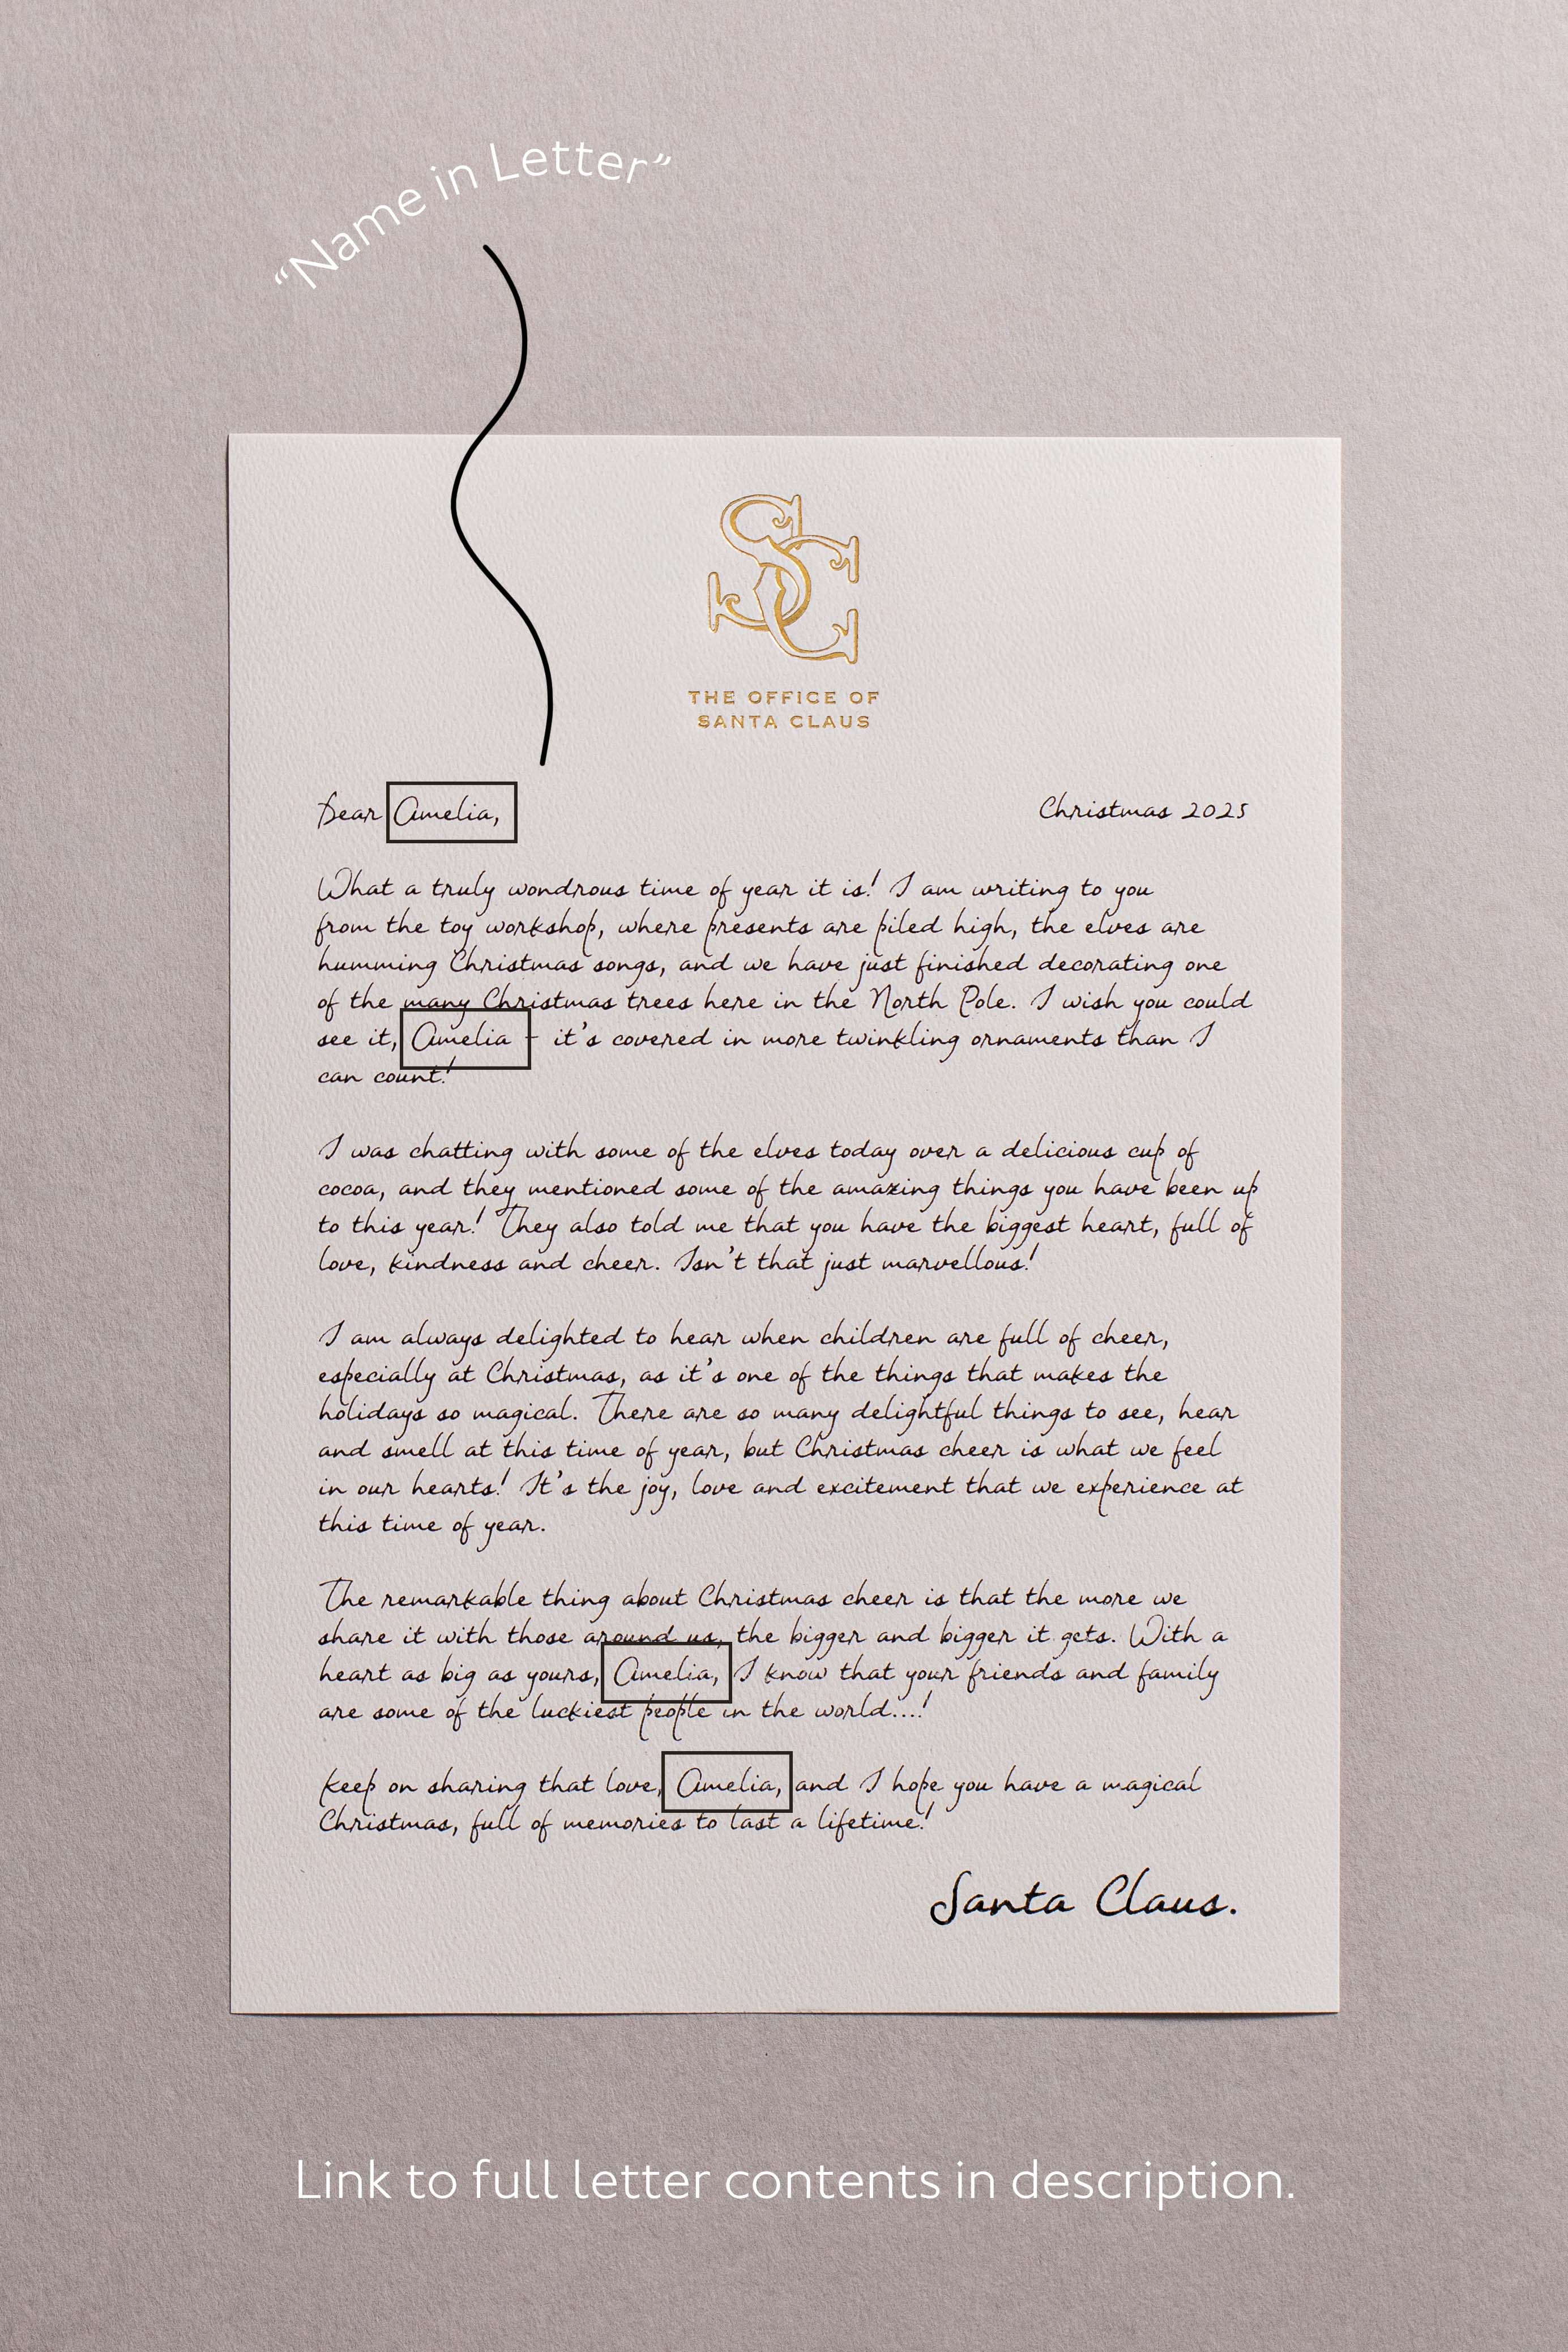 “Name in Letter”
SC
THE OFFICE OF
SANTA CLAUS
Dear Amelia,
Christmas 2025
What a truly wondrous time of year it is! I am writing to you
from the toy workshop, where presents are piled high, the elves are
humming Christmas songs, and we have just finished decorating one
of the many Christmas trees here in the North Pole. I wish you could
see it, Amelia - it's covered in more twinkling ornaments than I
can count!
I was chatting with some of the elves today over a delicious cup of
cocoa, and they mentioned some of the amazing things you have been up
to this year! They also told me that you have the biggest heart, full of
love, kindness and cheer. Isn't that just marvellous!
I am always delighted to hear when children are full of cheer,
especially at Christmas, as it's one of the things that makes the
holidays so magical. There are so many delightful things to see, hear
and smell at this time of year, but Christmas cheer is what we feel
in our hearts! It's the joy, love and excitement that we experience at
this time of year.
The remarkable thing about Christmas cheer is that the more we
share it with those around us, the bigger and bigger it gets. With a
heart as big as yours, Amelia, I know that your friends and family
are some of the luckiest people in the world...!
Keep on sharing that love, Amelia, and I hope you have a magical
Christmas, full of memories to last a lifetime!
Santa Claus.
Link to full letter contents in description.